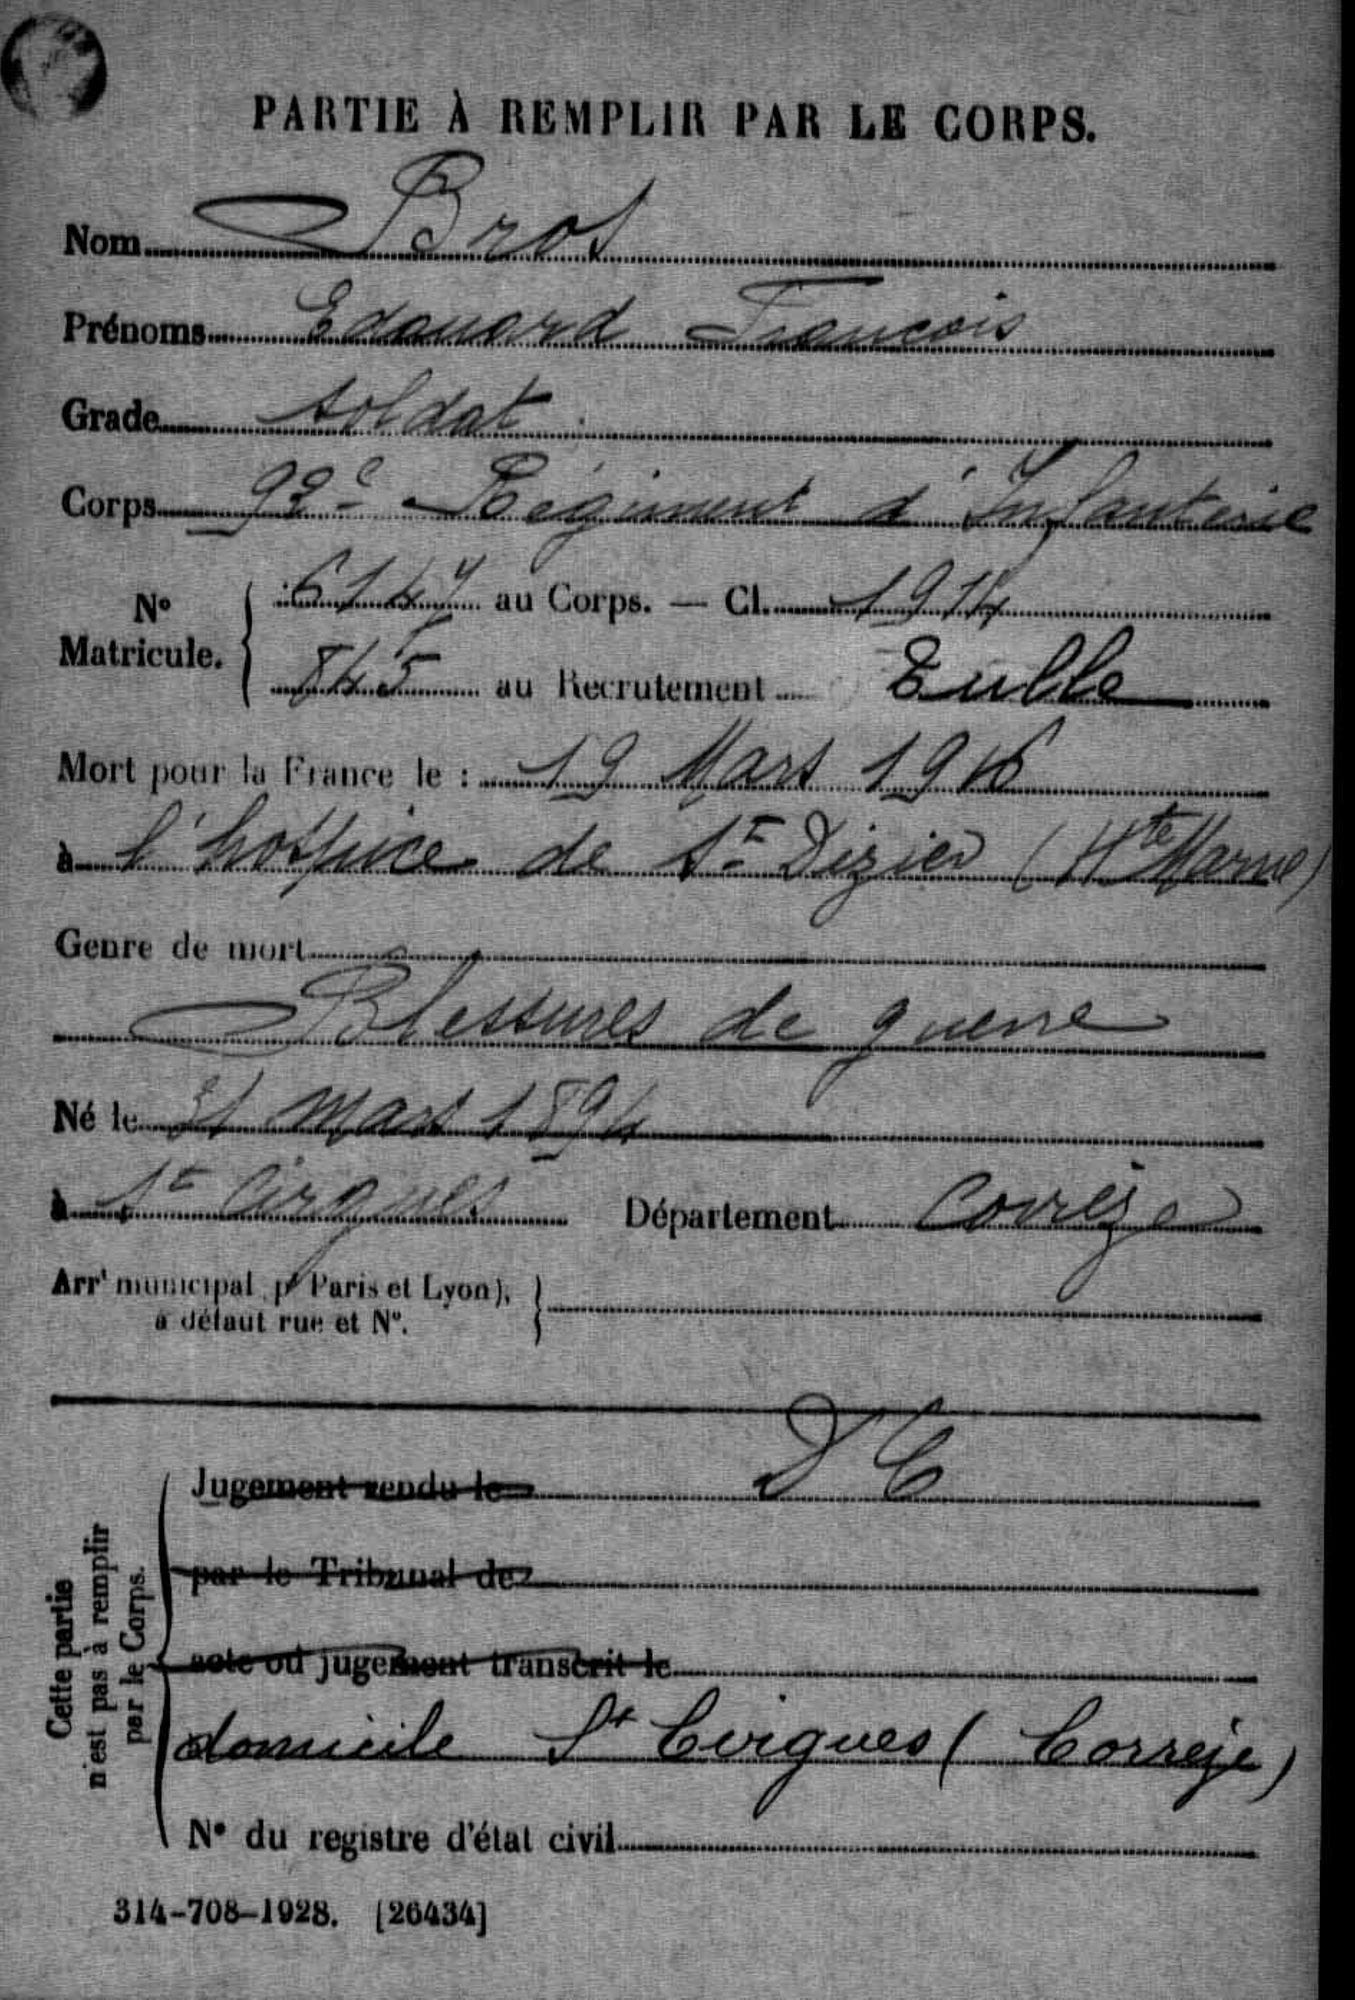 PARTIE À REMPLIR PAR LE CORPS.
Nom Bros
Prénoms Edouard François
Grade soldat
Corps 92e Régiment d'Infanterie
N° Matricule. { 6147 au Corps. — Cl. 1914
845 au Recrutement Tulle
Mort pour la France le : 19 Mars 1916
à l'hospice de St Dizier (Hte Marne)
Genre de mort
Blessures de guerre
Né le 31 Mars 1894
à St Cirgues Département Corrèze
Arrt municipal p. Paris et Lyon), à défaut rue et N°. }
D C
Jugement rendu le
par le Tribunal de
acte ou jugement transcrit le
domicile St Cirgues (Corrèze)
N° du registre d'état civil
Cette partie n'est pas à remplir par le Corps.
314-708-1928. [26434]